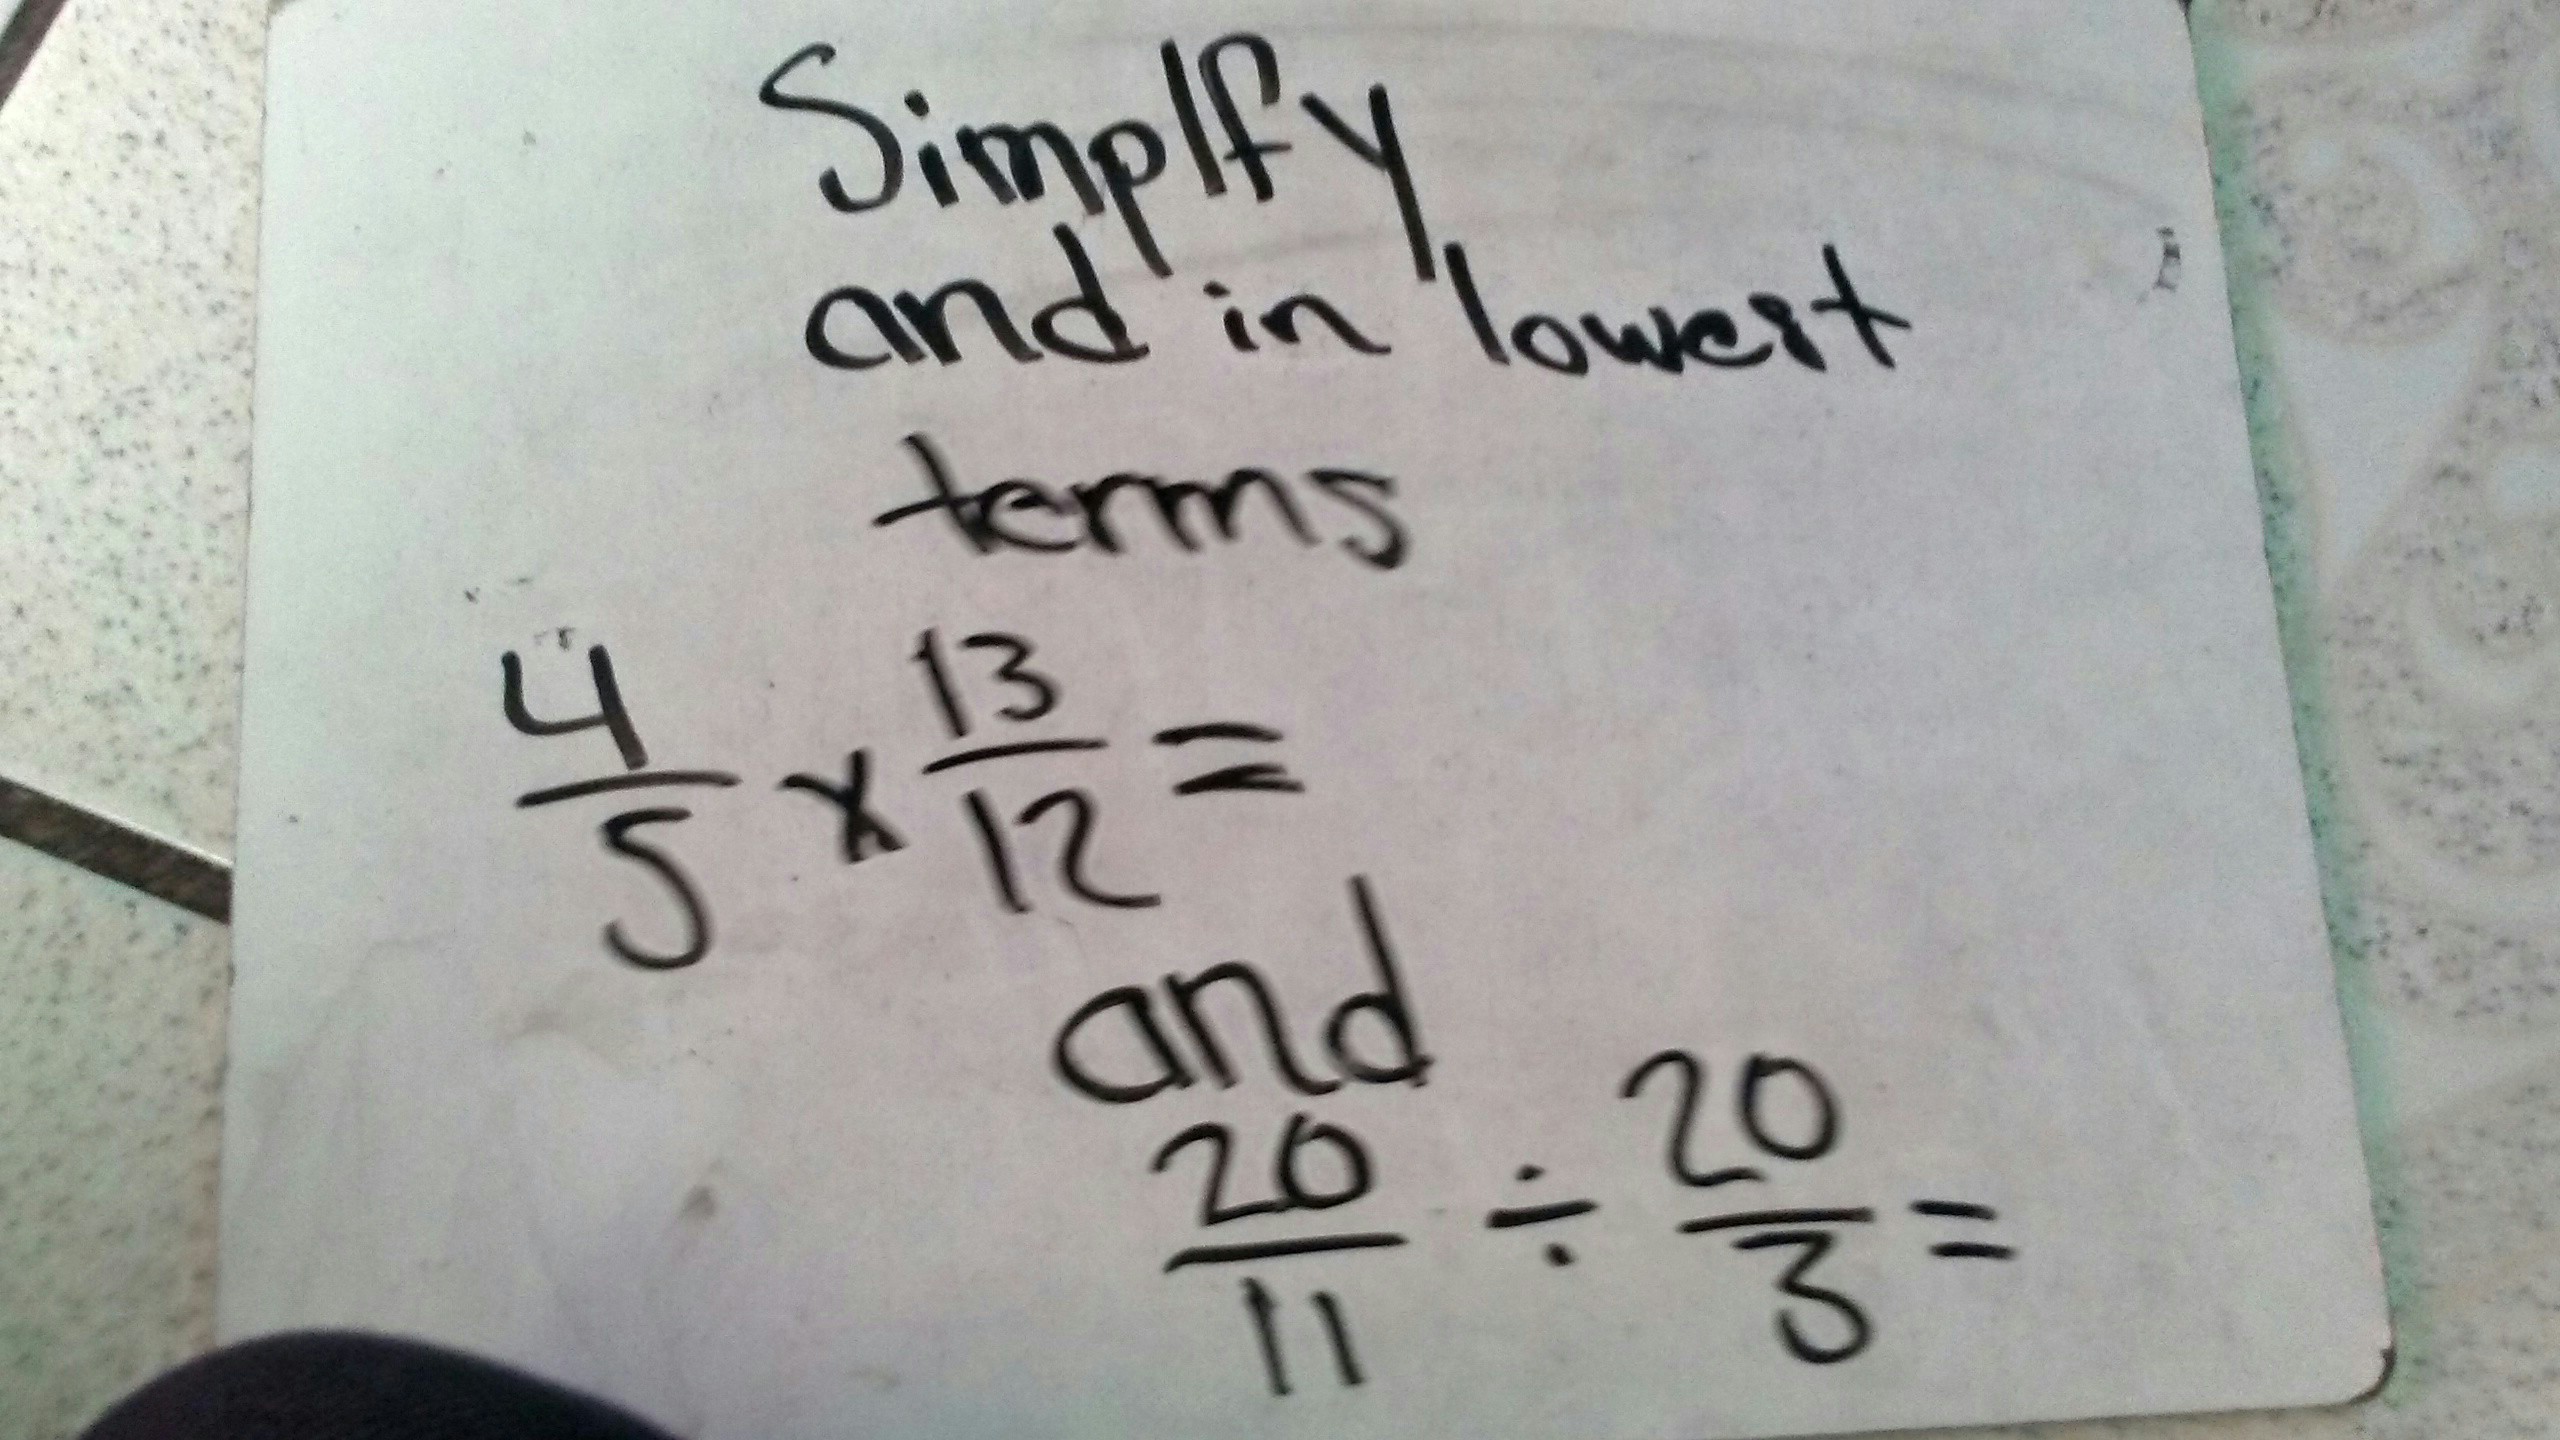 Simplfy
and in lowest
terms
4/5 x 13/12 =
and
20/11 ÷ 20/3 =